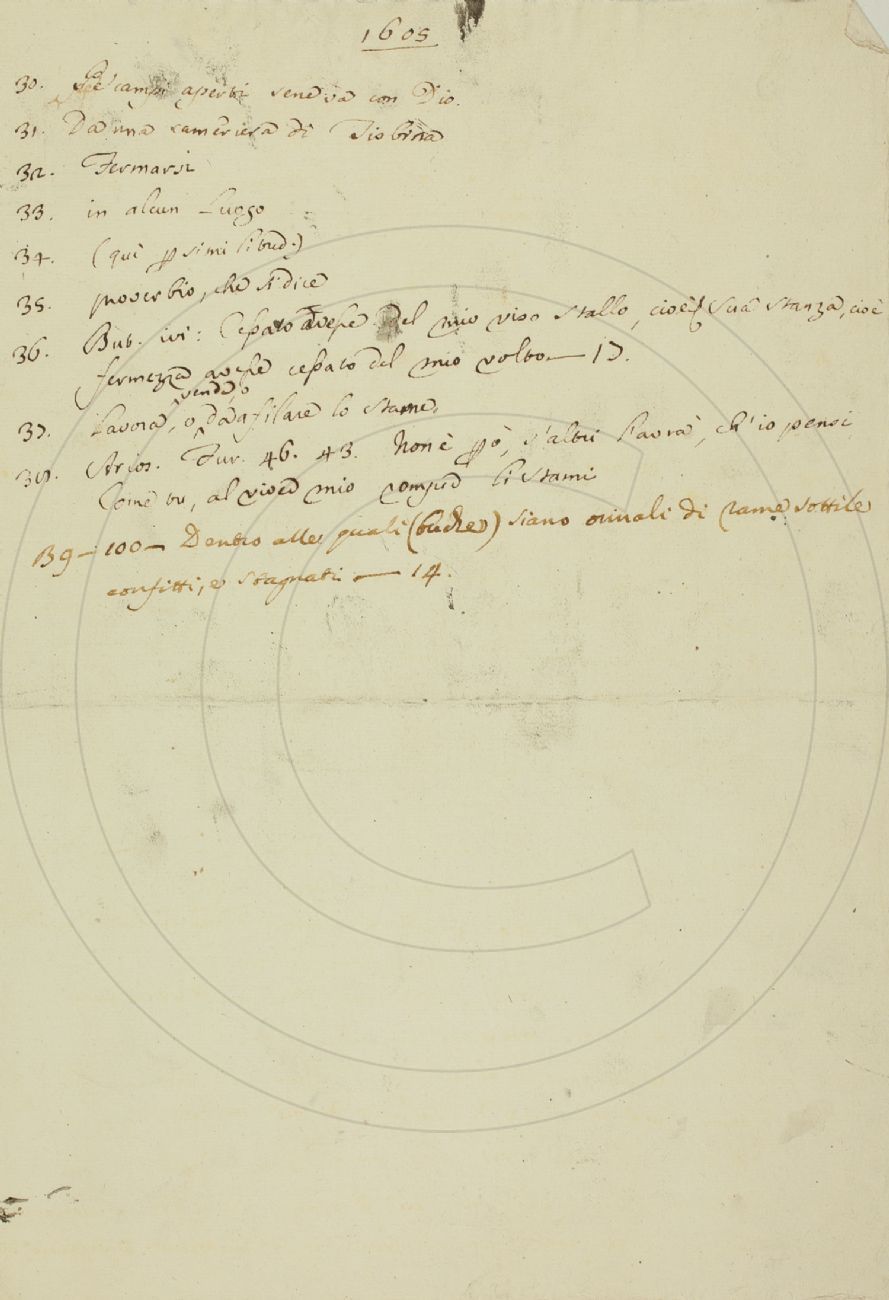 1605
30. Pe' campi aperti sene va con Dio.
31. Da una cameriera di Tisbina
32. Fermarsi
33. in alcun Luogo
34. (qui p similitud.)
35. proverbio, che si dice
36. But. ivi: Cessato avesse del mio viso stallo, cioè Sua stanza, cioè
fermezza avesse cessato del mio volto — 17.
vende, o
37. Lavora, o dà a filare lo stame.
38. Arios. Fur. 46. 43. Non è pò, s'altri l'avrà, ch'io pensi
Come tu, al viver mio romper li stami
39 — 100 — Dentro alle quali (buche) siano orinali di rame sottile
confitti, e stagnati — 14.